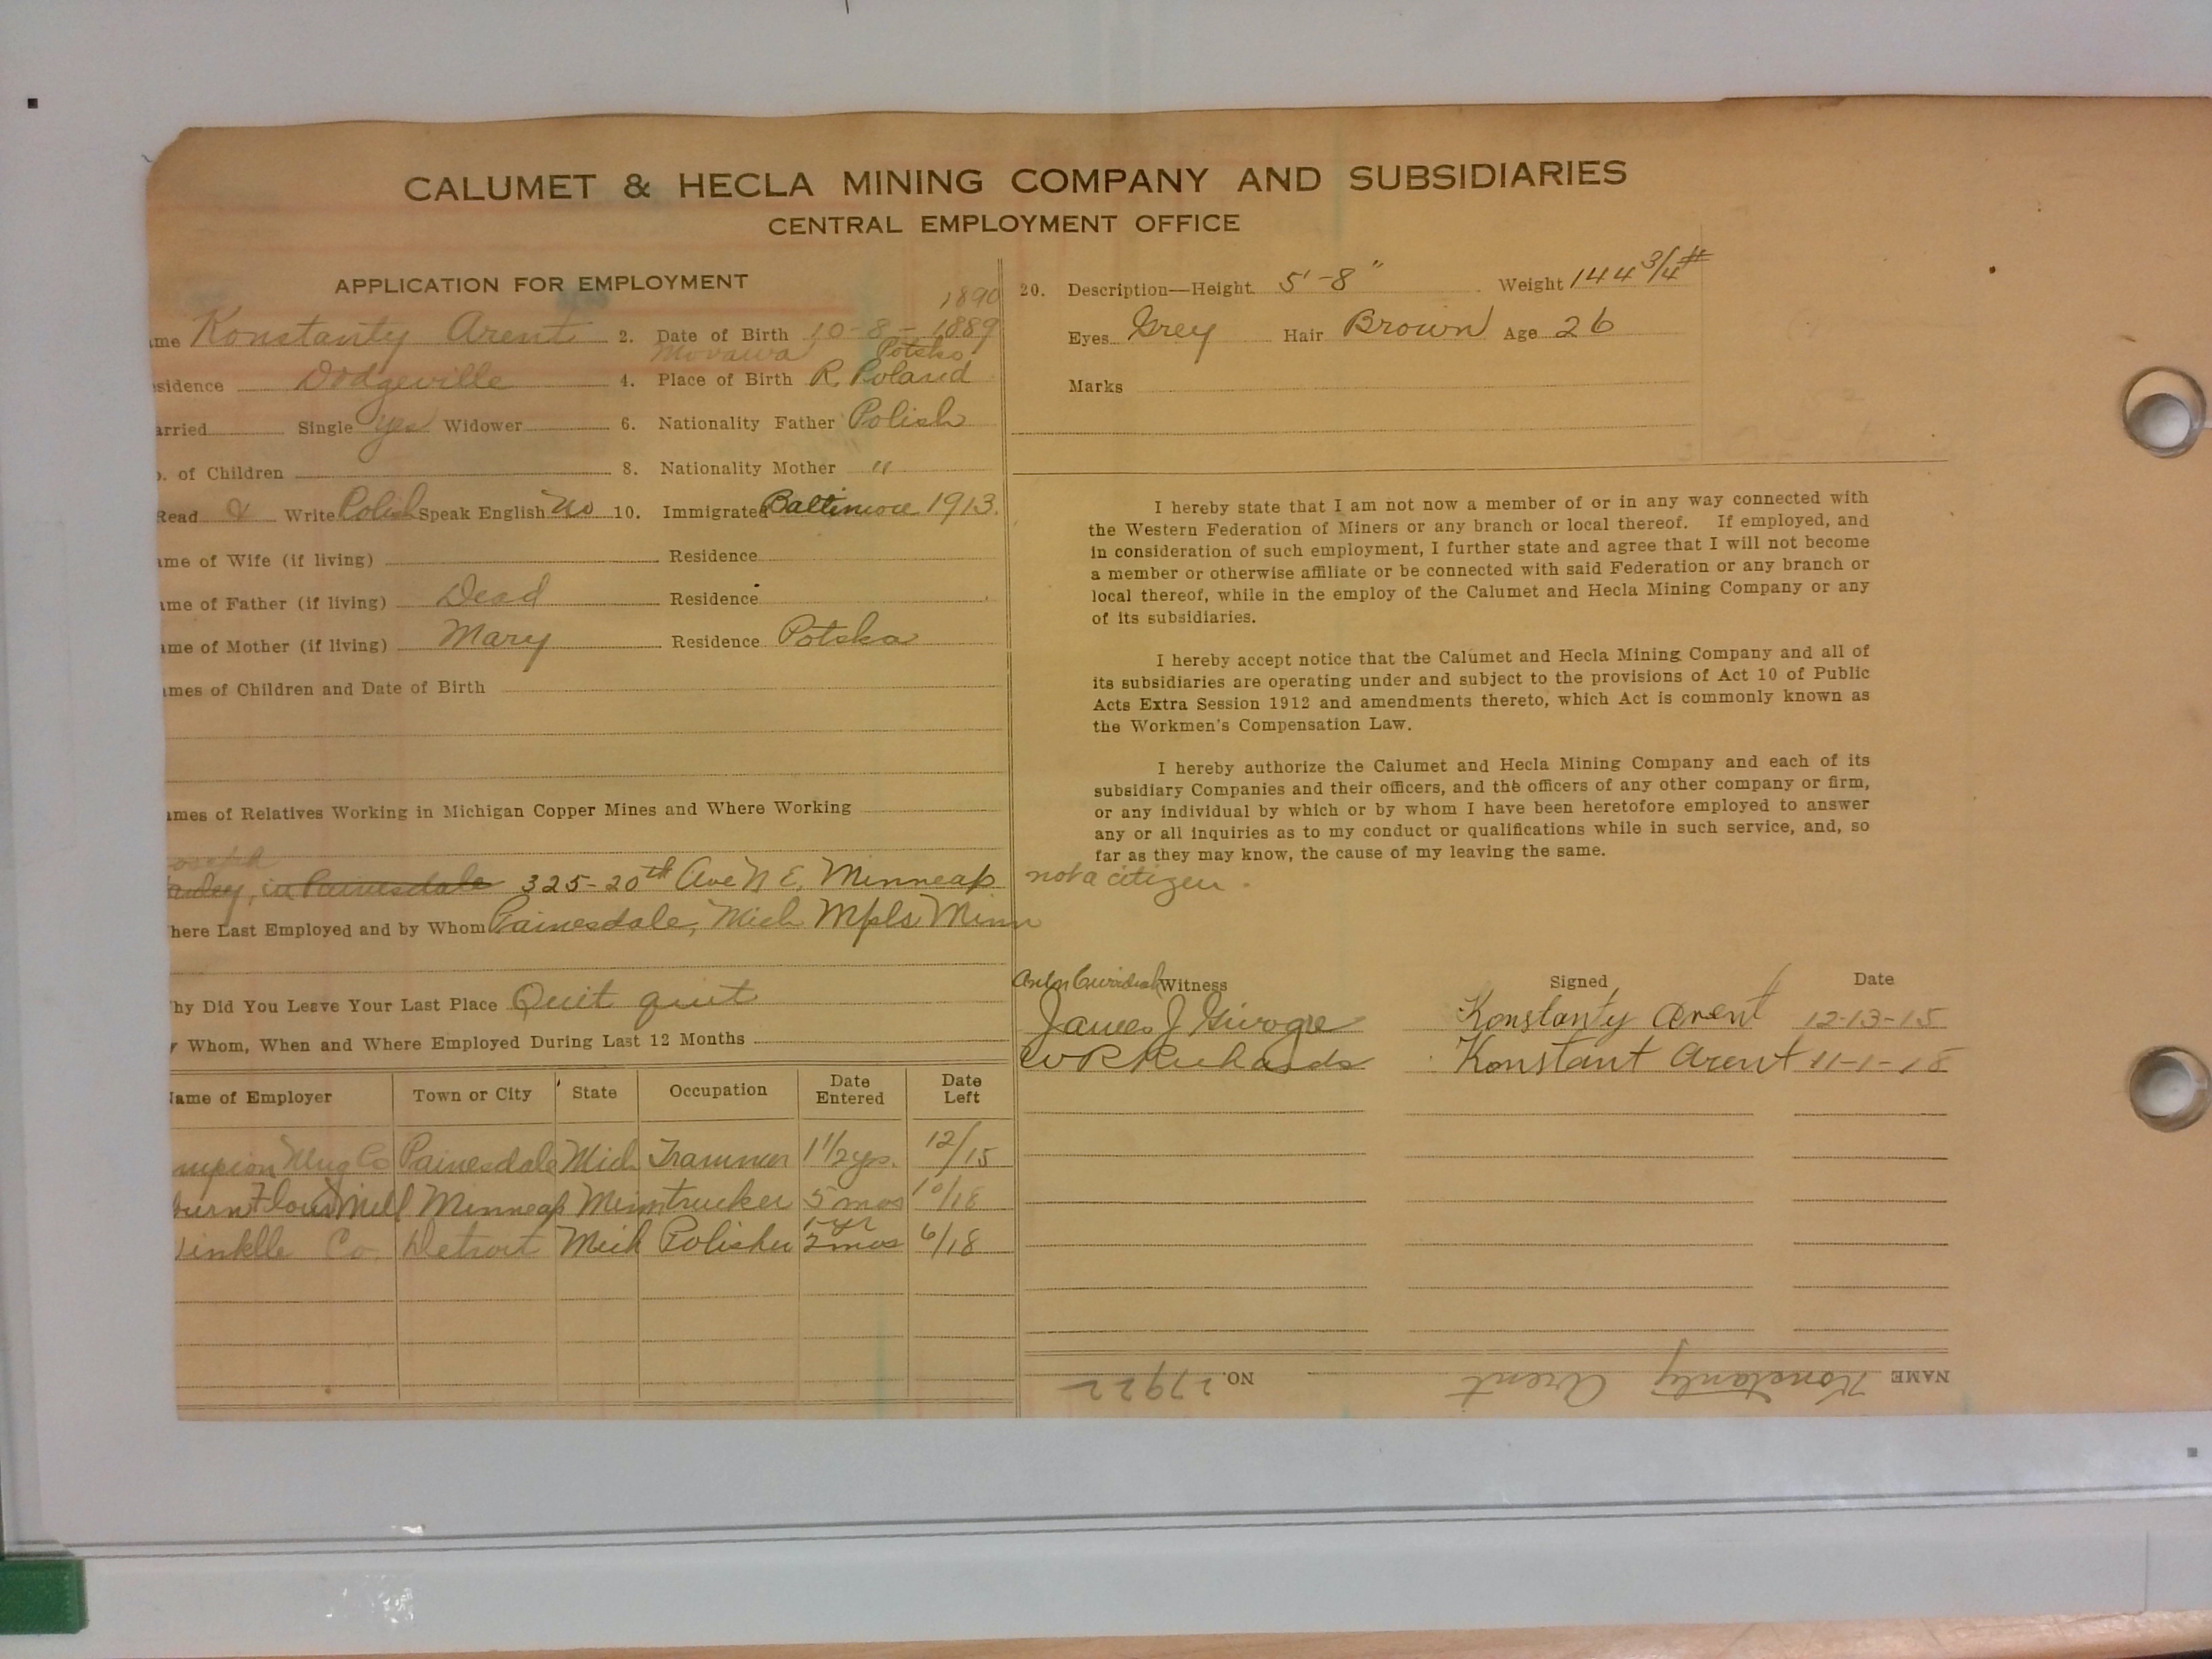 CALUMET & HECLA MINING COMPANY AND SUBSIDIARIES
CENTRAL EMPLOYMENT OFFICE
APPLICATION FOR EMPLOYMENT
1890
ame Konstanty Arent 2. Date of Birth 10-8-1889
Potsko
sidence Dodgeville 4. Place of Birth R. Poland
arried Single Yes Widower 6. Nationality Father Polish
o. of Children 8. Nationality Mother "
Read & Write Polish Speak English No 10. Immigrated Baltimore 1913.
ame of Wife (if living) Residence
ame of Father (if living) Dead Residence
ame of Mother (if living) Mary Residence Potska
ames of Children and Date of Birth
ames of Relatives Working in Michigan Copper Mines and Where Working
in Painesdale 325-20th Ave N E, Minneap
here Last Employed and by Whom Painesdale, Mich Mpls Minn
hy Did You Leave Your Last Place Quit quit
r Whom, When and Where Employed During Last 12 Months
Name of Employer Town or City State Occupation Date Entered Date Left
mpion Mng Co Painesdale Mich Trammer 1 1/2 yrs. 12/15
burn Flour Mill Minneap Minn trucker 5 mos 10/18
inklle Co. Detroit Mich Polisher 1 yr 2 mos 6/18
20. Description—Height 5'-8" Weight 144 3/4 #
Eyes Grey Hair Brown Age 26
Marks
I hereby state that I am not now a member of or in any way connected with
the Western Federation of Miners or any branch or local thereof. If employed, and
in consideration of such employment, I further state and agree that I will not become
a member or otherwise affiliate or be connected with said Federation or any branch or
local thereof, while in the employ of the Calumet and Hecla Mining Company or any
of its subsidiaries.
I hereby accept notice that the Calumet and Hecla Mining Company and all of
its subsidiaries are operating under and subject to the provisions of Act 10 of Public
Acts Extra Session 1912 and amendments thereto, which Act is commonly known as
the Workmen's Compensation Law.
I hereby authorize the Calumet and Hecla Mining Company and each of its
subsidiary Companies and their officers, and the officers of any other company or firm,
or any individual by which or by whom I have been heretofore employed to answer
any or all inquiries as to my conduct or qualifications while in such service, and, so
far as they may know, the cause of my leaving the same.
not a citizen.
Witness Signed Date
James J Konstanty Arent 12-13-15
W R Richards Konstant Arent 11-1-18
NAME Konstanty Arent NO. 27922